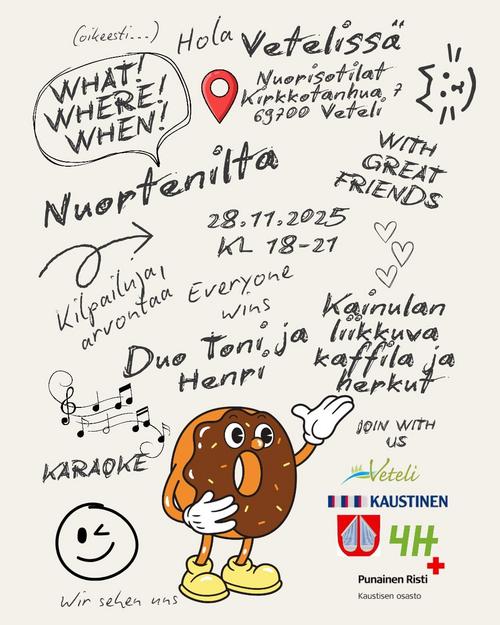 (oikeesti...)
Hola
Vetelissä
WHAT!
WHERE!
WHEN!
Nuorisotilat
Kirkkotanhua 7
69700 Veteli
WITH
GREAT
FRIENDS
Nuortenilta
28.11.2025
KL 18-21
Kilpailuja,
arvontaa
Everyone
wins
Kainulan
liikkuva
kaffila ja
herkut
Duo Toni ja
Henri
JOIN WITH
US
KARAOKE
Veteli
KAUSTINEN
4H
Punainen Risti
Kaustisen osasto
Wir sehen uns